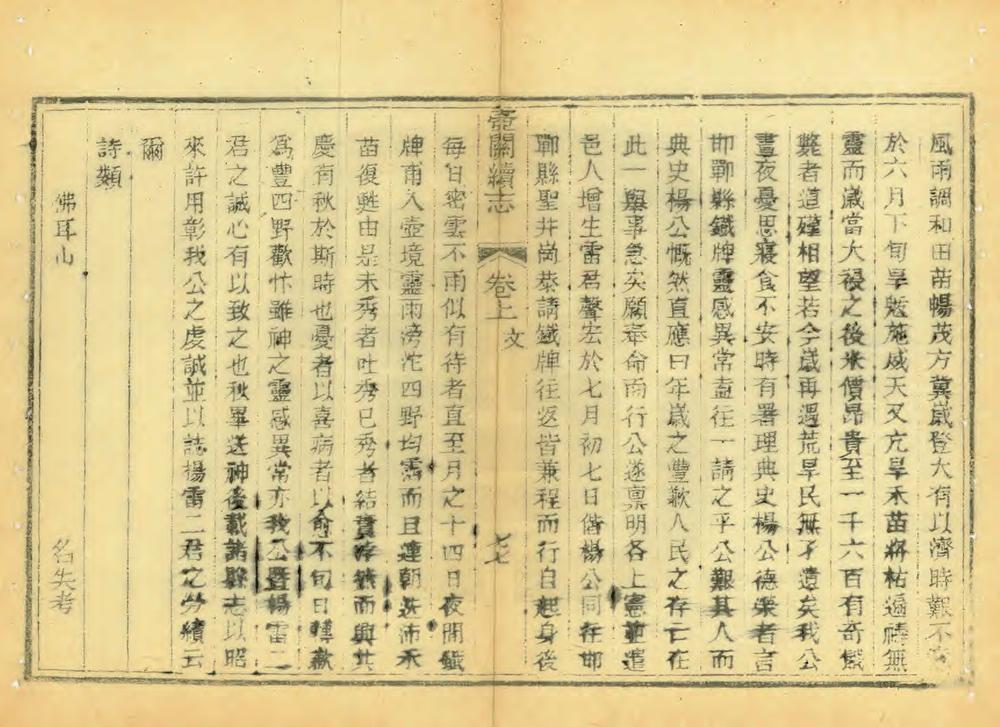 風雨調和田苗暢茂方冀歲登大有以濟時艱不
於六月下旬旱魃施威天又亢旱禾苗將枯遍禱無
靈而歲當大祲之後米價昂貴至一千六百有奇餓
斃者道殣相望若今歲再遇荒旱民無孑遺矣我公
晝夜憂思寢食不安時有署理典史楊公德榮者言
邯鄲縣鐵牌靈感異常盍往一請之乎公艱其人而
典史楊公慨然直應曰年歲之豐歉人民之存亡在
此一舉事急矣願奉命而行公遂稟明各上憲並遣
邑人增生雷君聲宏於七月初七日偕楊公同在邯
鄲縣聖井崗恭請鐵牌往返皆兼程而行自起身後
壺關續志
卷上
文
七七
每日密雲不雨似有待者直至月之十四日夜間鐵
牌甫入壺境靈雨滂沱四野均霑而且連朝迭沛禾
苗復甦由是未秀者吐秀已秀者結實浡然而興共
慶有秋於斯時也憂者以喜病者以愈不旬日轉歉
為豐四野歡忭雖神之靈感異常亦我公暨楊雷二
君之誠心有以致之也秋畢送神後載諸縣志以昭
來許用彰我公之虔誠並以誌楊雷二君之勞績云
爾
詩類
佛耳山
名失考